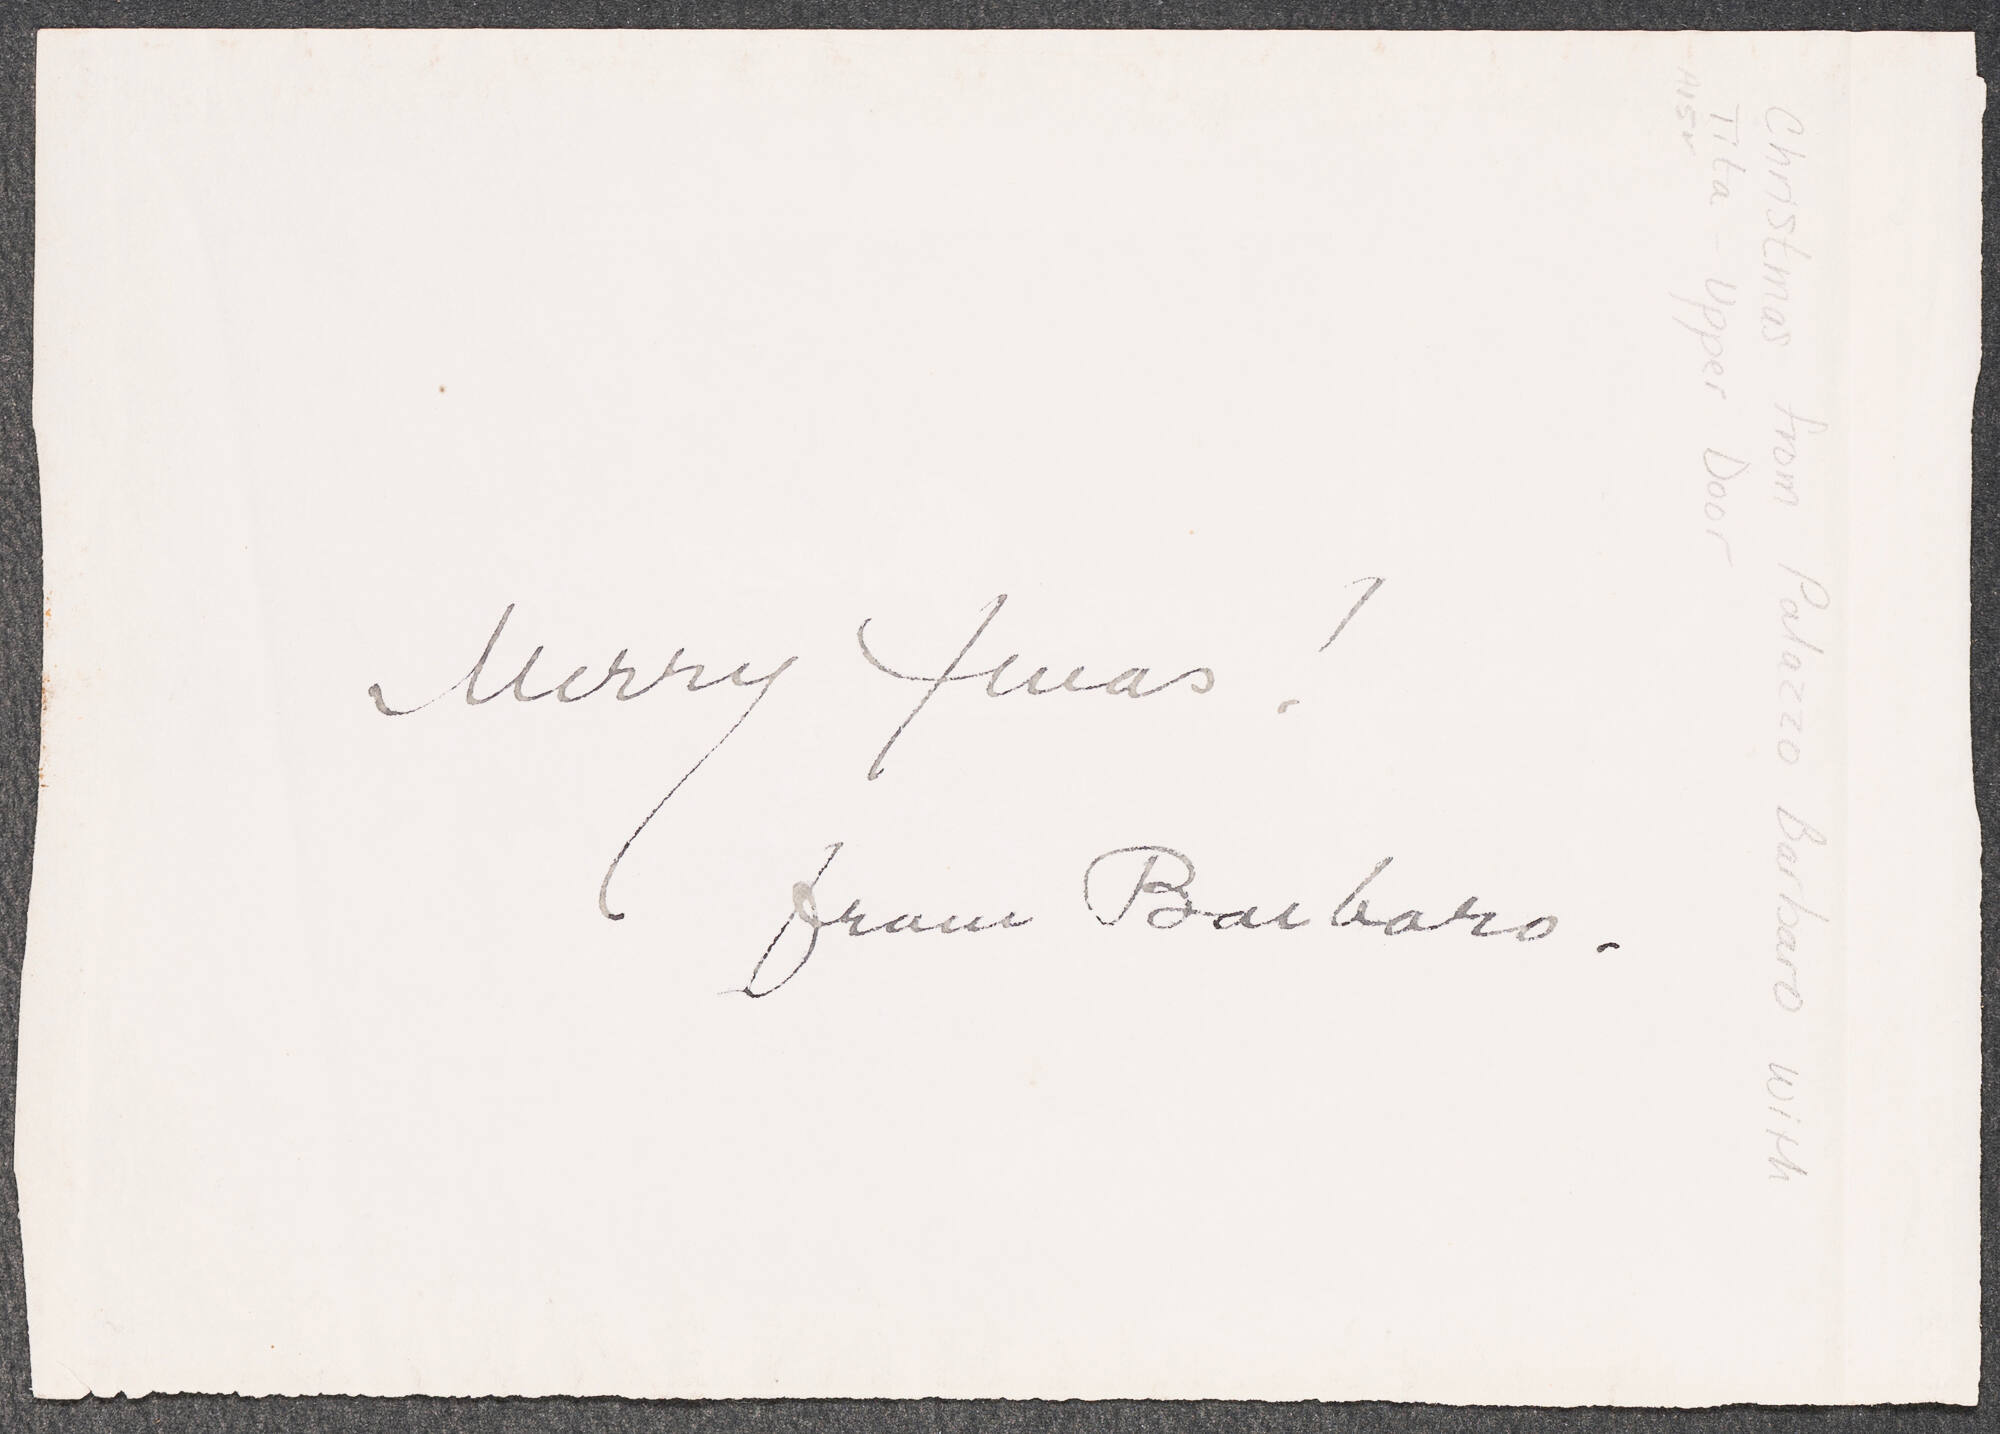 Merry Xmas!
from Barbaro.
Christmas from Palazzo Barbaro with
Tita - Upper Door